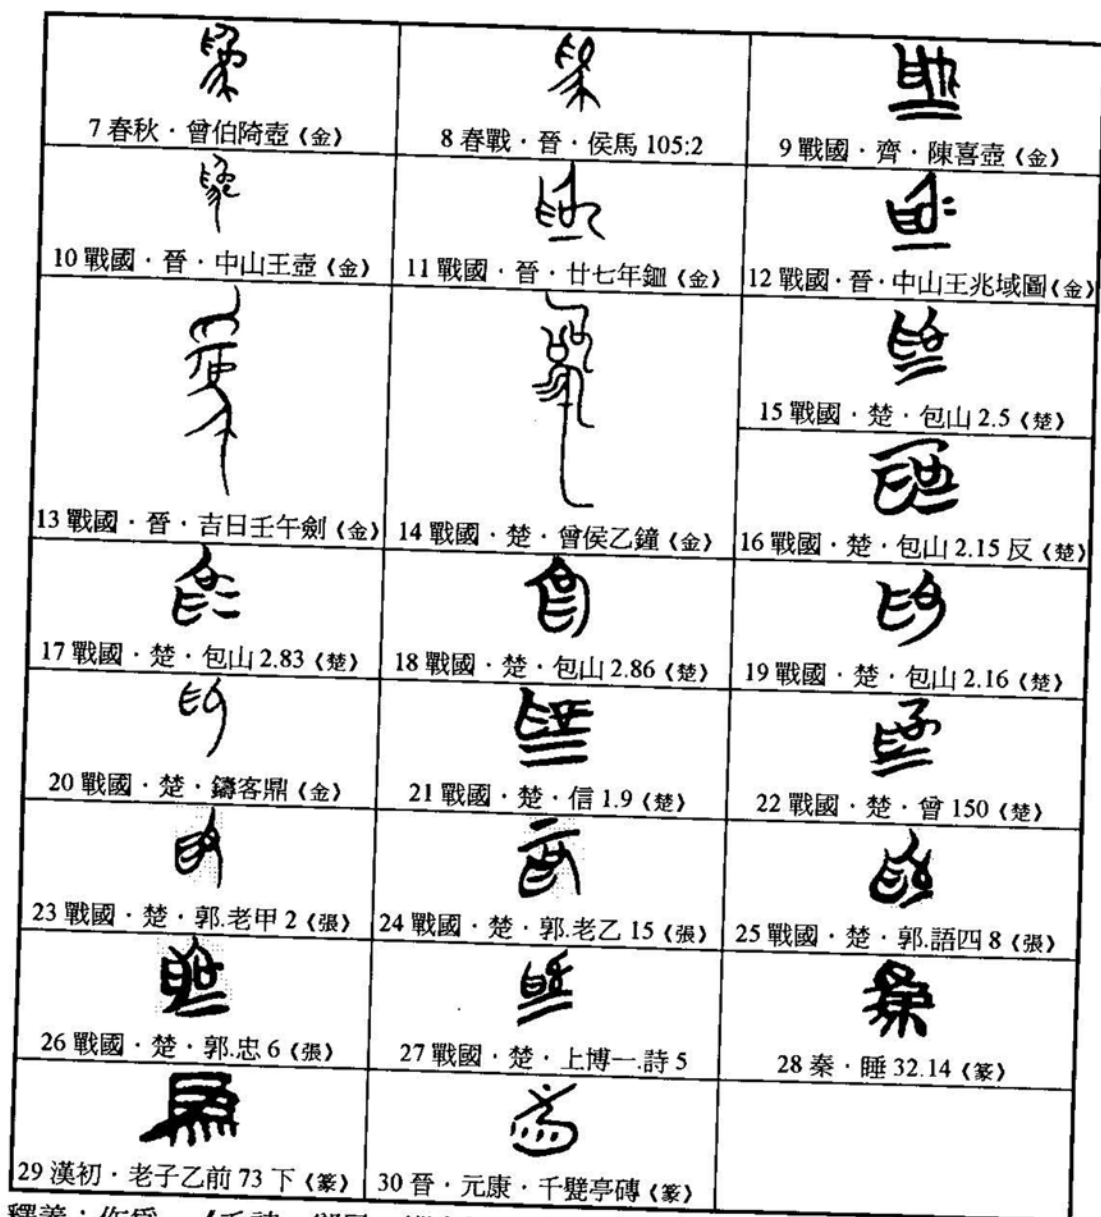 7 春秋．曾伯陭壺《金》
8 春戰．晉．侯馬 105:2
9 戰國．齊．陳喜壺《金》
10 戰國．晉．中山王壺《金》
11 戰國．晉．廿七年鈿《金》
12 戰國．晉．中山王兆域圖《金》
13 戰國．晉．吉日壬午劍《金》
14 戰國．楚．曾侯乙鐘《金》
15 戰國．楚．包山 2.5《楚》
16 戰國．楚．包山 2.15 反《楚》
17 戰國．楚．包山 2.83《楚》
18 戰國．楚．包山 2.86《楚》
19 戰國．楚．包山 2.16《楚》
20 戰國．楚．鑄客鼎《金》
21 戰國．楚．信 1.9《楚》
22 戰國．楚．曾 150《楚》
23 戰國．楚．郭.老甲 2《張》
24 戰國．楚．郭.老乙 15《張》
25 戰國．楚．郭.語四 8《張》
26 戰國．楚．郭.忠 6《張》
27 戰國．楚．上博一.詩 5
28 秦．睡 32.14《篆》
29 漢初．老子乙前 73 下《篆》
30 晉．元康．千甓亭磚《篆》